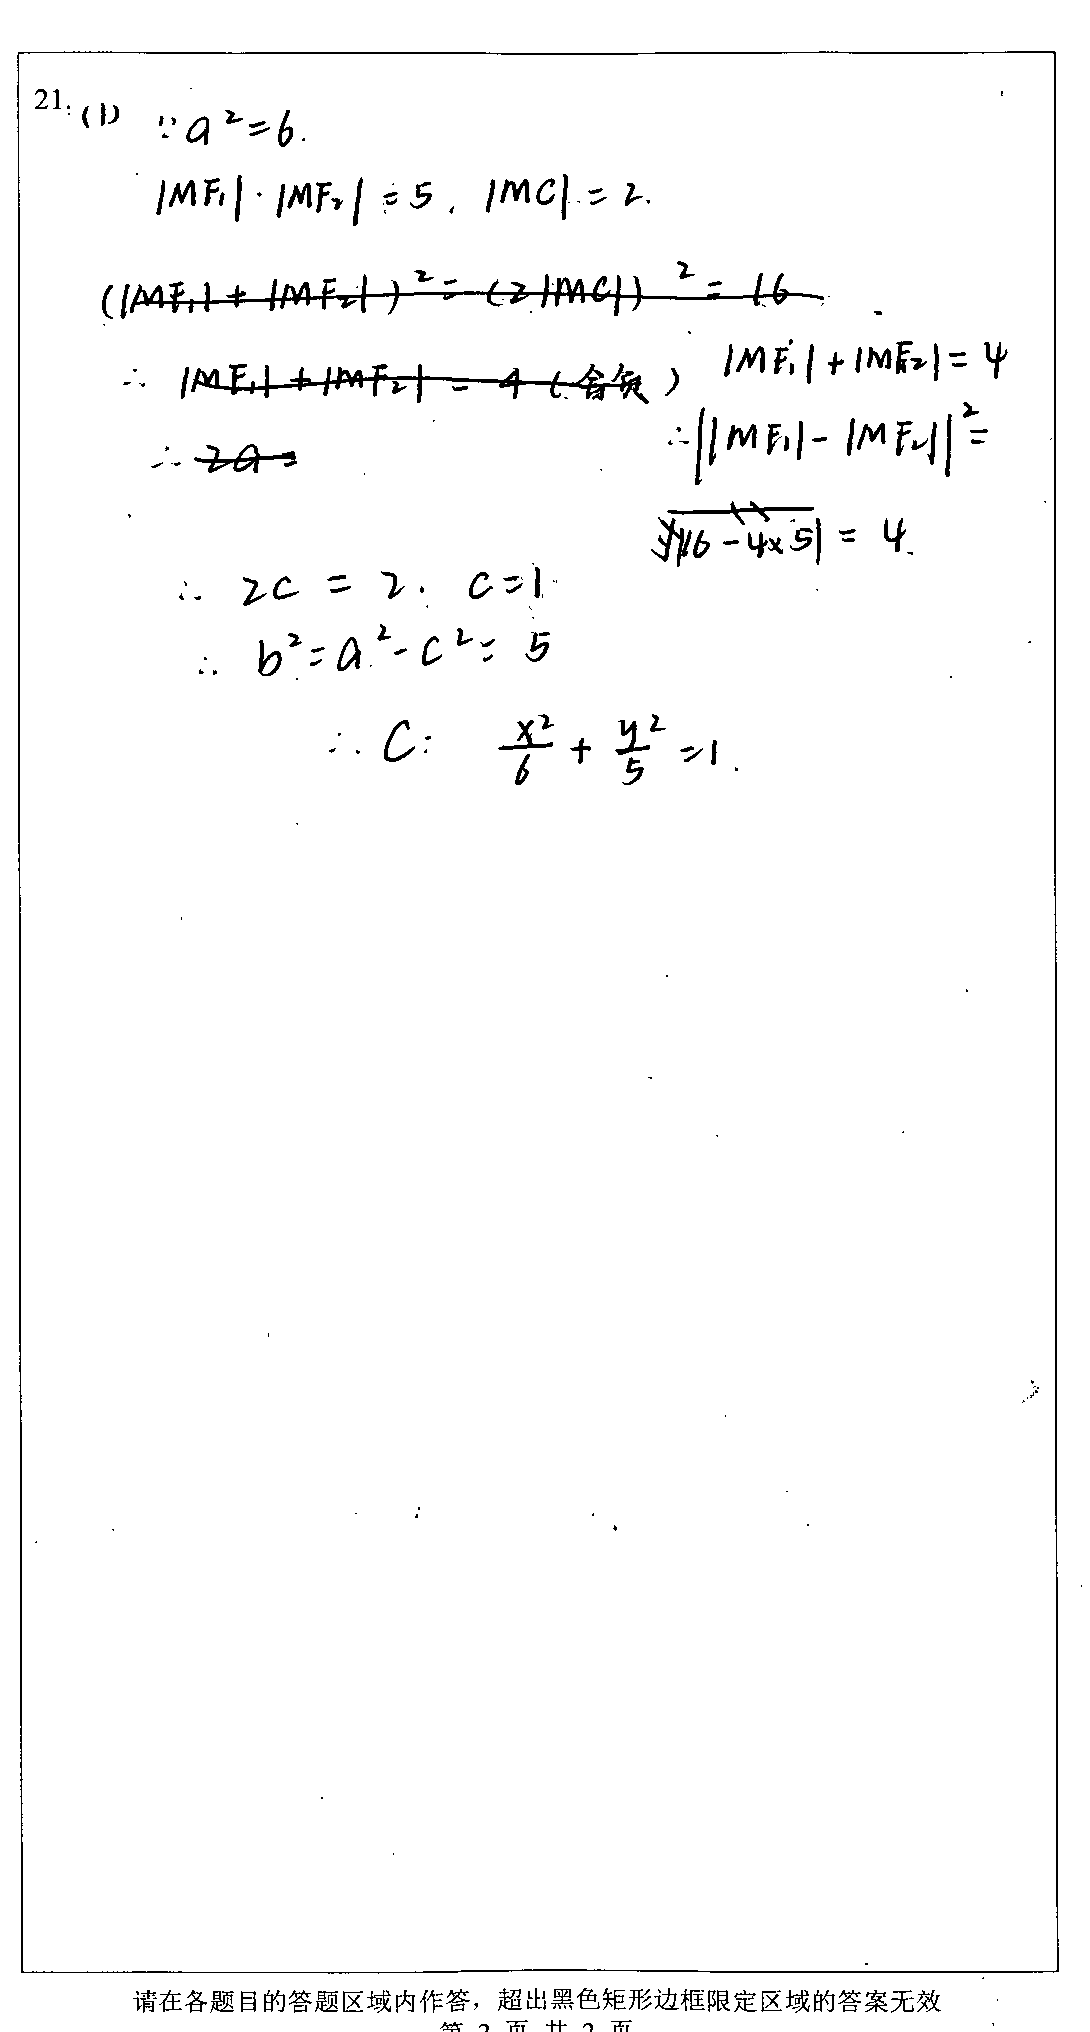 21. (1) ∵ a²=6.
|MF₁|·|MF₂|=5, |MC|=2.
(|MF₁|+|MF₂|)²=(2|MC|)²=16
∴ |MF₁|+|MF₂|=4(舍负) |MF₁|+|MF₂|=4
∴ 2a= ∴||MF₁|-|MF₂||²=
|16-4×5|=4.
∴ 2c=2. c=1
∴ b²=a²-c²=5
∴ C: x²/6+y²/5=1.
请在各题目的答题区域内作答，超出黑色矩形边框限定区域的答案无效
第 2 页 共 2 页